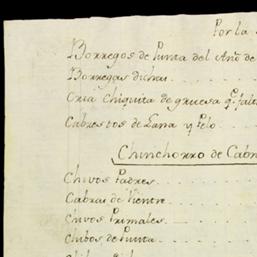 Por la
Borregos de Punta del Año de
Borregas dichas
Cria chiquita de gruesa q.e falt
Cabrestos de Lana y Pelo
Chinchorro de Cabr
Chivos Padres
Cabras de Vientre
Chivos Primales
Chibos de Punta